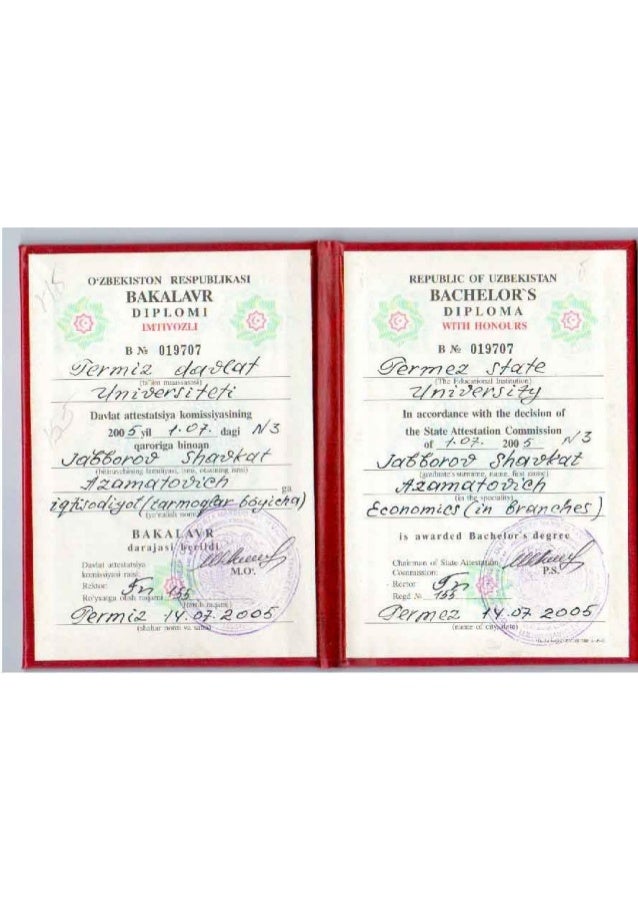 O'ZBEKISTON RESPUBLIKASI
BAKALAVR
DIPLOMI
IMTIYOZLI
B № 019707
Termiz davlat
(ta'lim muassasasi)
Universiteti
Davlat attestatsiya komissiyasining
2005 yil 1.07. dagi N3
qaroriga binoan
Jabborov Shavkat
(bitiruvchining familiyasi, ismi, otasining ismi)
Azamatovich ga
iqtisodiyot (tarmoqlar bóyicha)
(yo'nalish nomi)
BAKALAVR
darajasi berildi
Davlat attestatsiya
komissiyasi raisi: M.O'.
Rektor:
Ro'yxatga olish raqami 155
Termiz 14.07.2005
(shahar nomi va sana)
REPUBLIC OF UZBEKISTAN
BACHELOR'S
DIPLOMA
WITH HONOURS
B № 019707
Termez state
(The Educational Institution)
University
In accordance with the decision of
the State Attestation Commission
of 1.07. 2005 N3
Jabborov Shavkat
(graduate's surname, name, first name)
Azamatovich
(in the speciality)
Economics (in branches)
is awarded Bachelor's degree
Chairman of State Attestation
Commission: P.S.
Rector
Regd № 155
Termez 14.07.2005
(name of city, date)